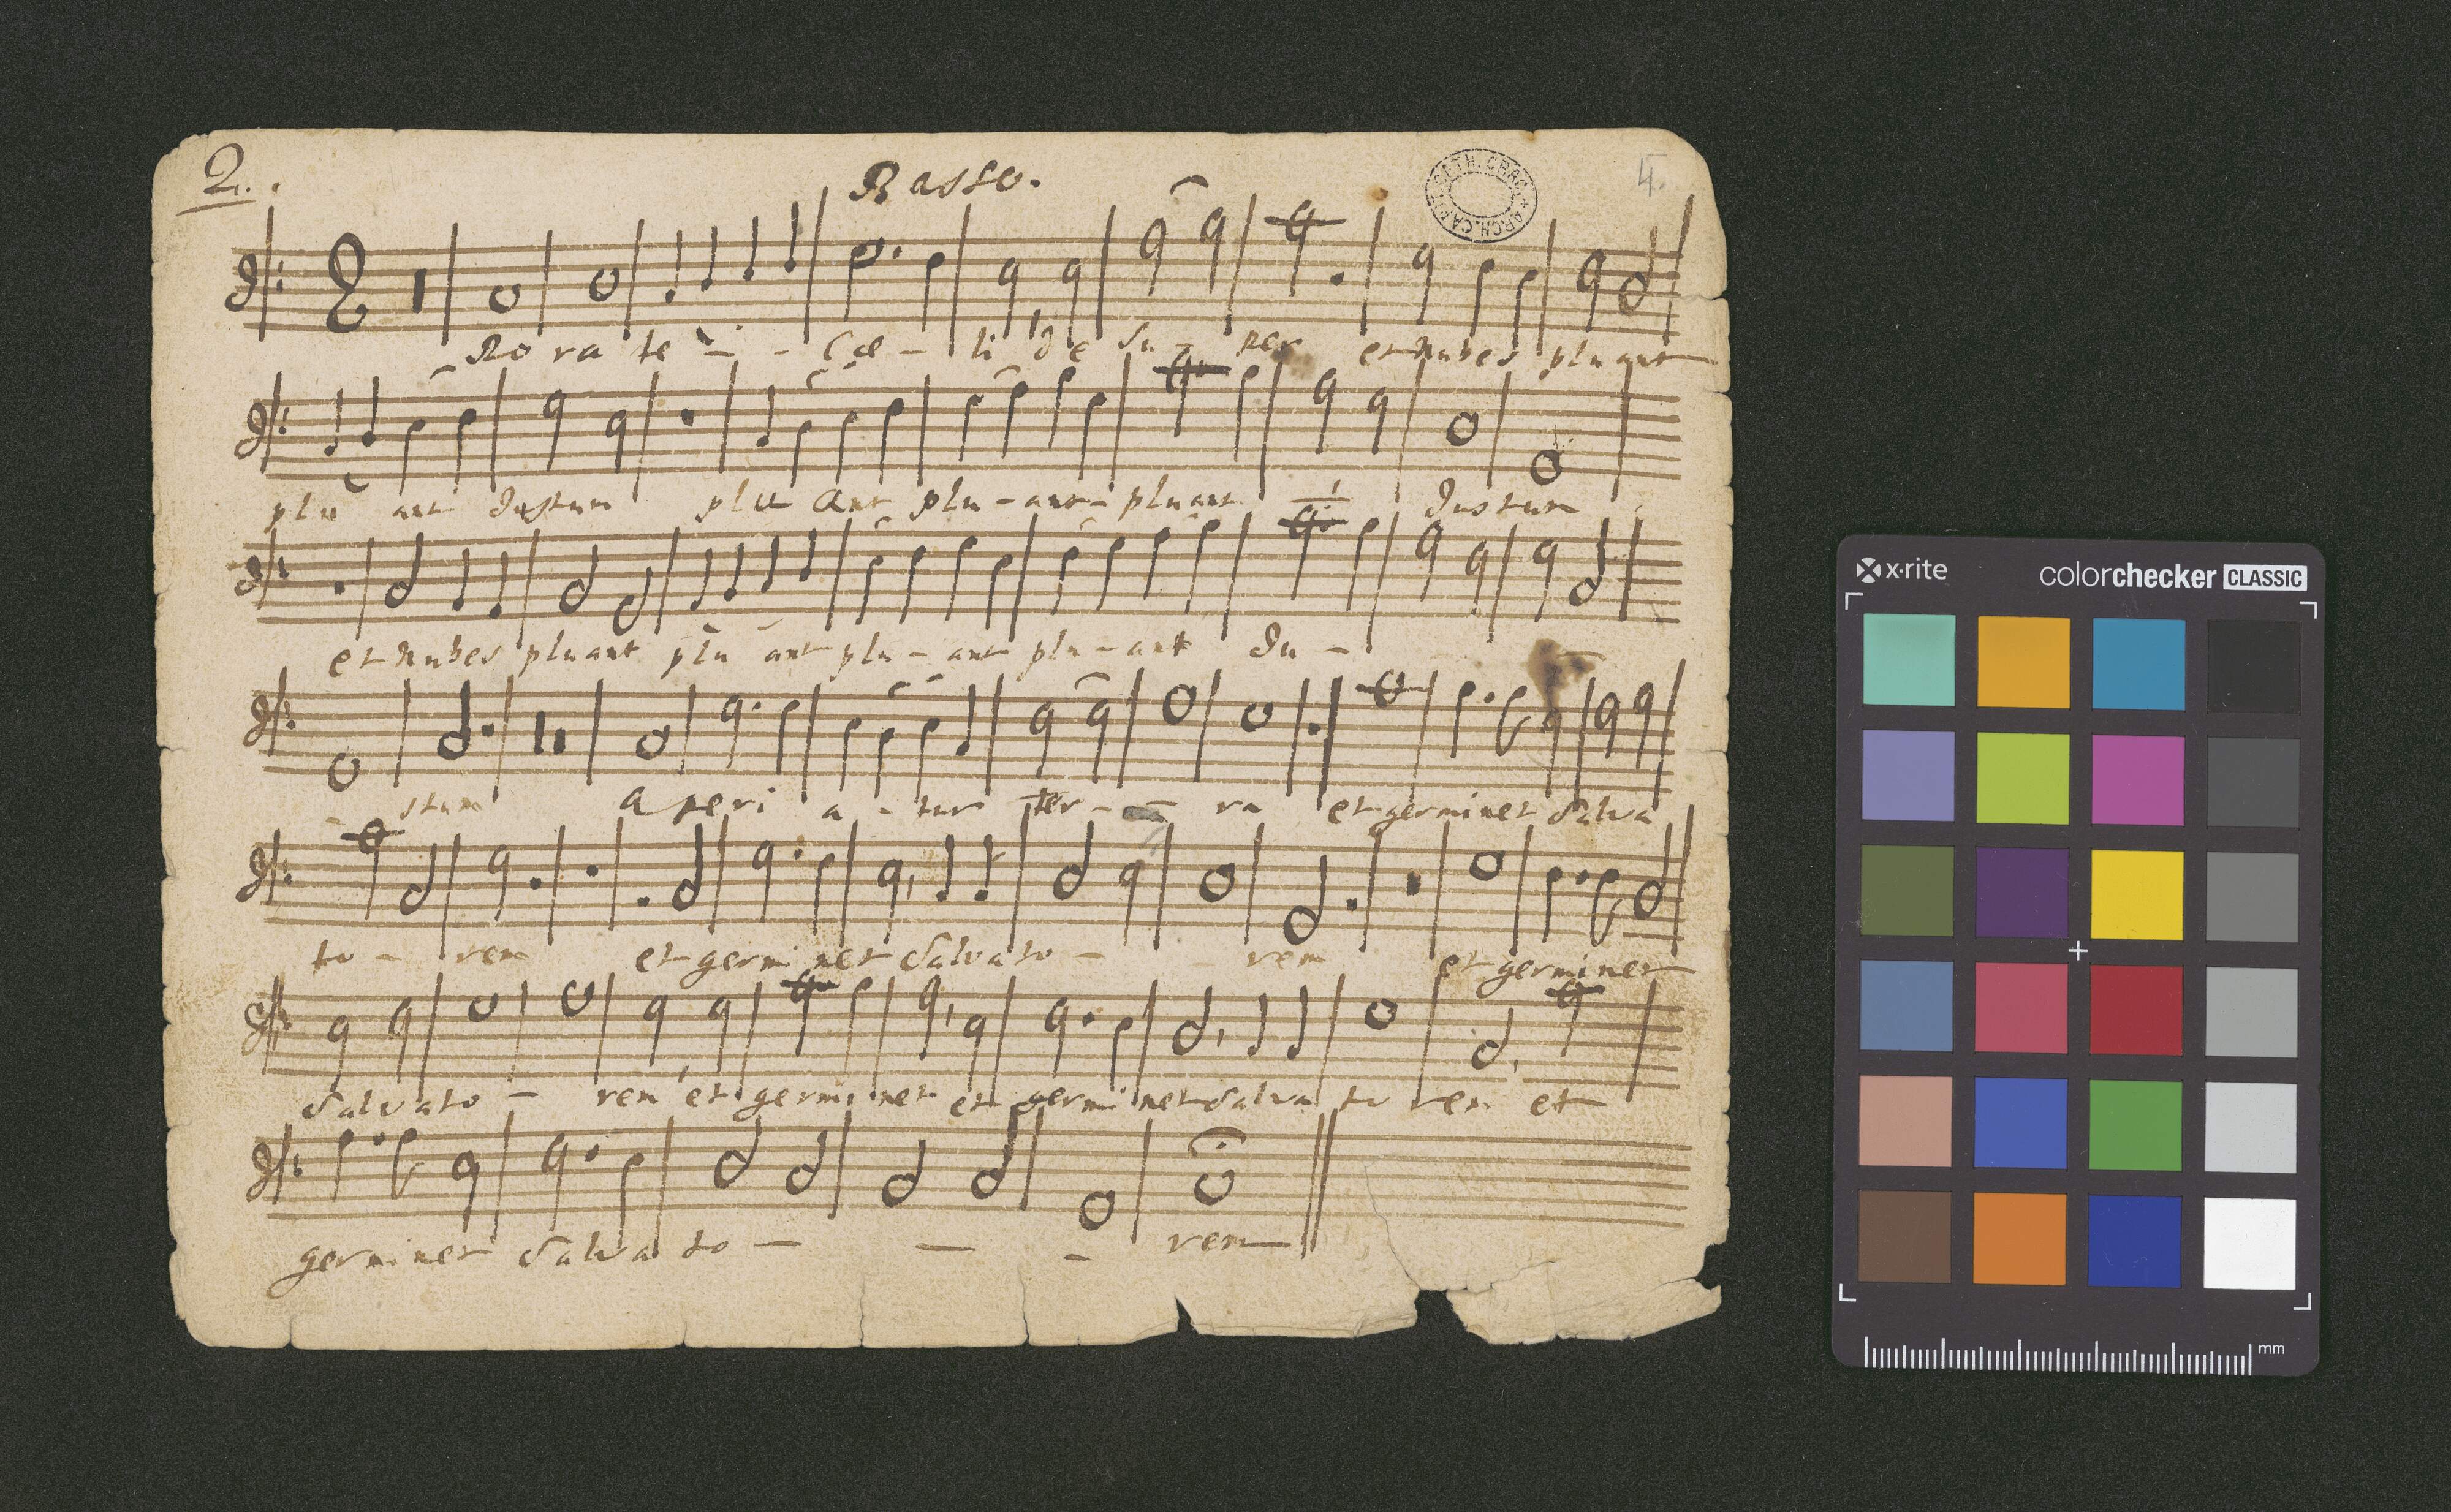 2. Basso. 4.
Ro ra te - - - Cæ - li de Su - per et nubes pluant
plu ant Justum plu ant plu - ant - pluant Justum
et nubes pluant plu ant plu - ant plu - ant Ju -
stum a peri a - tur ter - - ra et germinet Salva
to - rem et germi net Salvato - - rem et germinet
Salvato - rem et germi net et germi net Salva to rem et
germinet Salva to - - - rem
x·rite colorchecker CLASSIC
mm